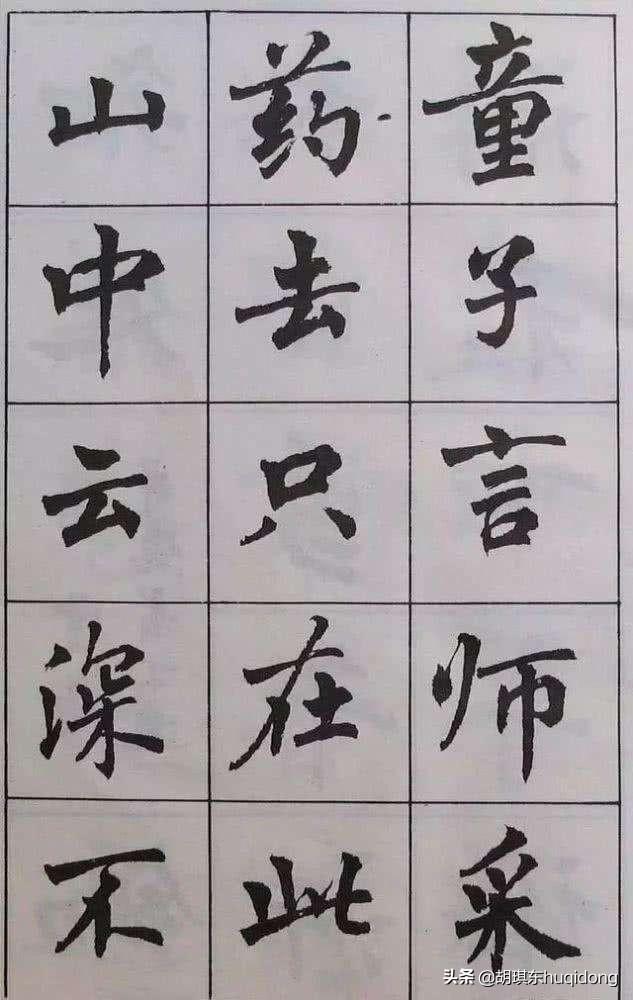 童子言师采
药去只在此
山中云深不
头条 @胡琪东huqidong